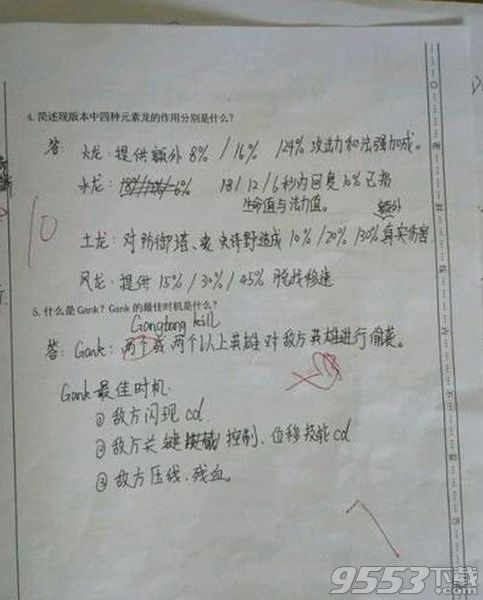 4. 简述现版本中四种元素龙的作用分别是什么?
答: 火龙: 提供额外 8% / 16% / 24% 攻击力和法强加成。
水龙: 6% 18 / 12 / 6 秒内回复 10% 已损
生命值与法力值。
额外
土龙: 对防御塔、史诗野造成 10% / 20% / 30% 真实伤害
10
风龙: 提供 15% / 30% / 45% 脱战移速
5. 什么是 Gank? Gank 的最佳时机是什么?
Gangbang kill
答: Gank: 两个或两个以上英雄对敌方英雄进行偷袭。
Gank 最佳时机:
① 敌方闪现 cd
② 敌方关键 控制、位移技能 cd
③ 敌方压线、残血。
7
9553下载
.com